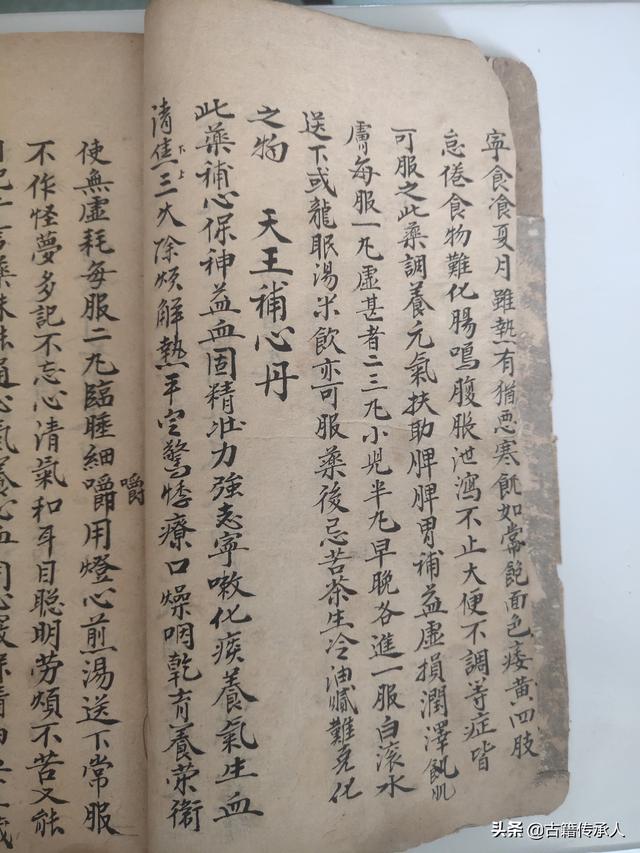 寧食飡夏月雖熱有猶恶寒飢如常飽面色痿黄四肢
怠倦食物難化腸鳴腹脹泄瀉不止大便不調等症皆
可服之此藥調養元氣扶助脾脾胃補益虛損潤澤飢肌
膚每服一丸虛甚者二三丸小児半丸早晚各進一服白滾水
送下或龍眼湯米飲亦可服藥後忌苦茶生冷油膩難克化
之物 天王補心丹
此藥補心保神益血固精壯力強志寧嗽化痰養氣生血
清焦上下三火除煩解熱平定驚悸療口燥咽乾育養荣衛
使無虛耗每服二丸臨睡細嚼嚼用燈心煎湯送下常服
不作怪夢多記不忘心清氣和耳目聡明劳煩不苦又能
頭条 @古籍传承人